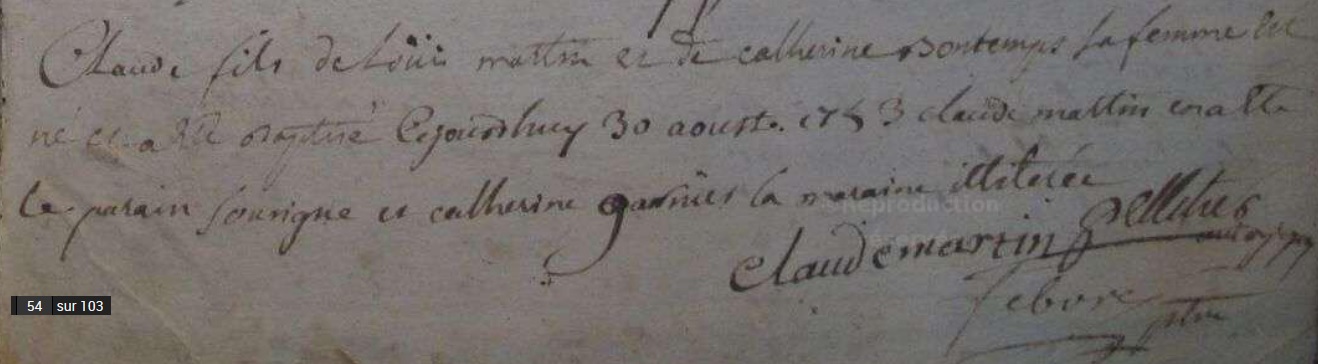 Claude fils de Loüis martin et de catherine Bontemps sa femme est
né et a été baptisé Cejourdhuy 30 aoust. 1753 claude martin en a été
le parain sousigne et catherine garnier la maraine illiterée
claude martin
54 sur 103